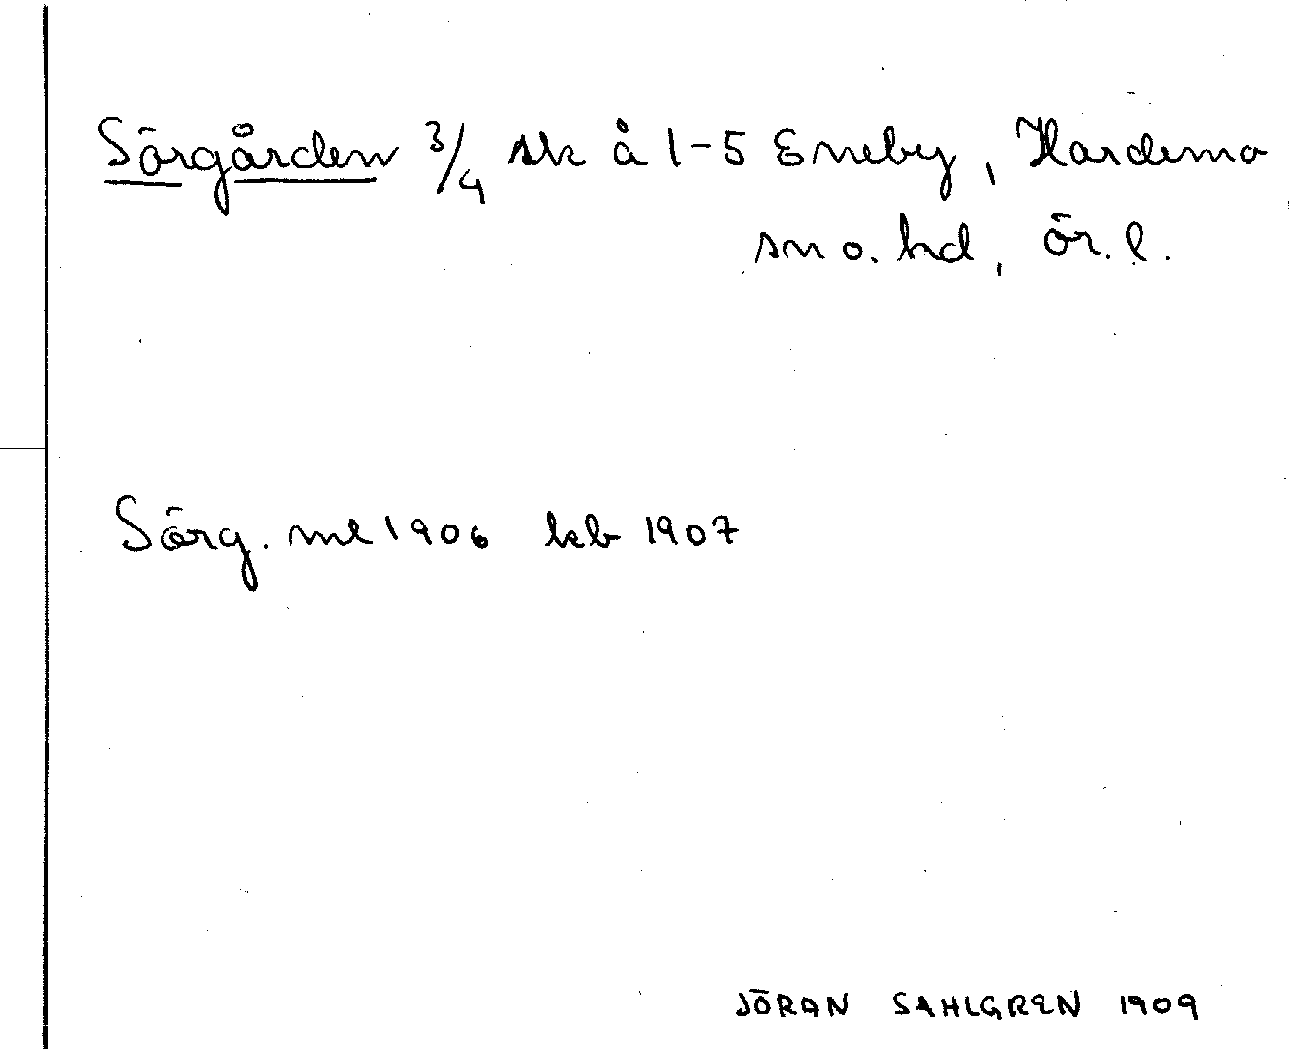 Sörgården 3/4 sk å 1-5 Eneby, Hardemo
sn o. hd, ör. l.
Sörg. ml 1906 kb 1907
JÖRAN SAHLGREN 1909